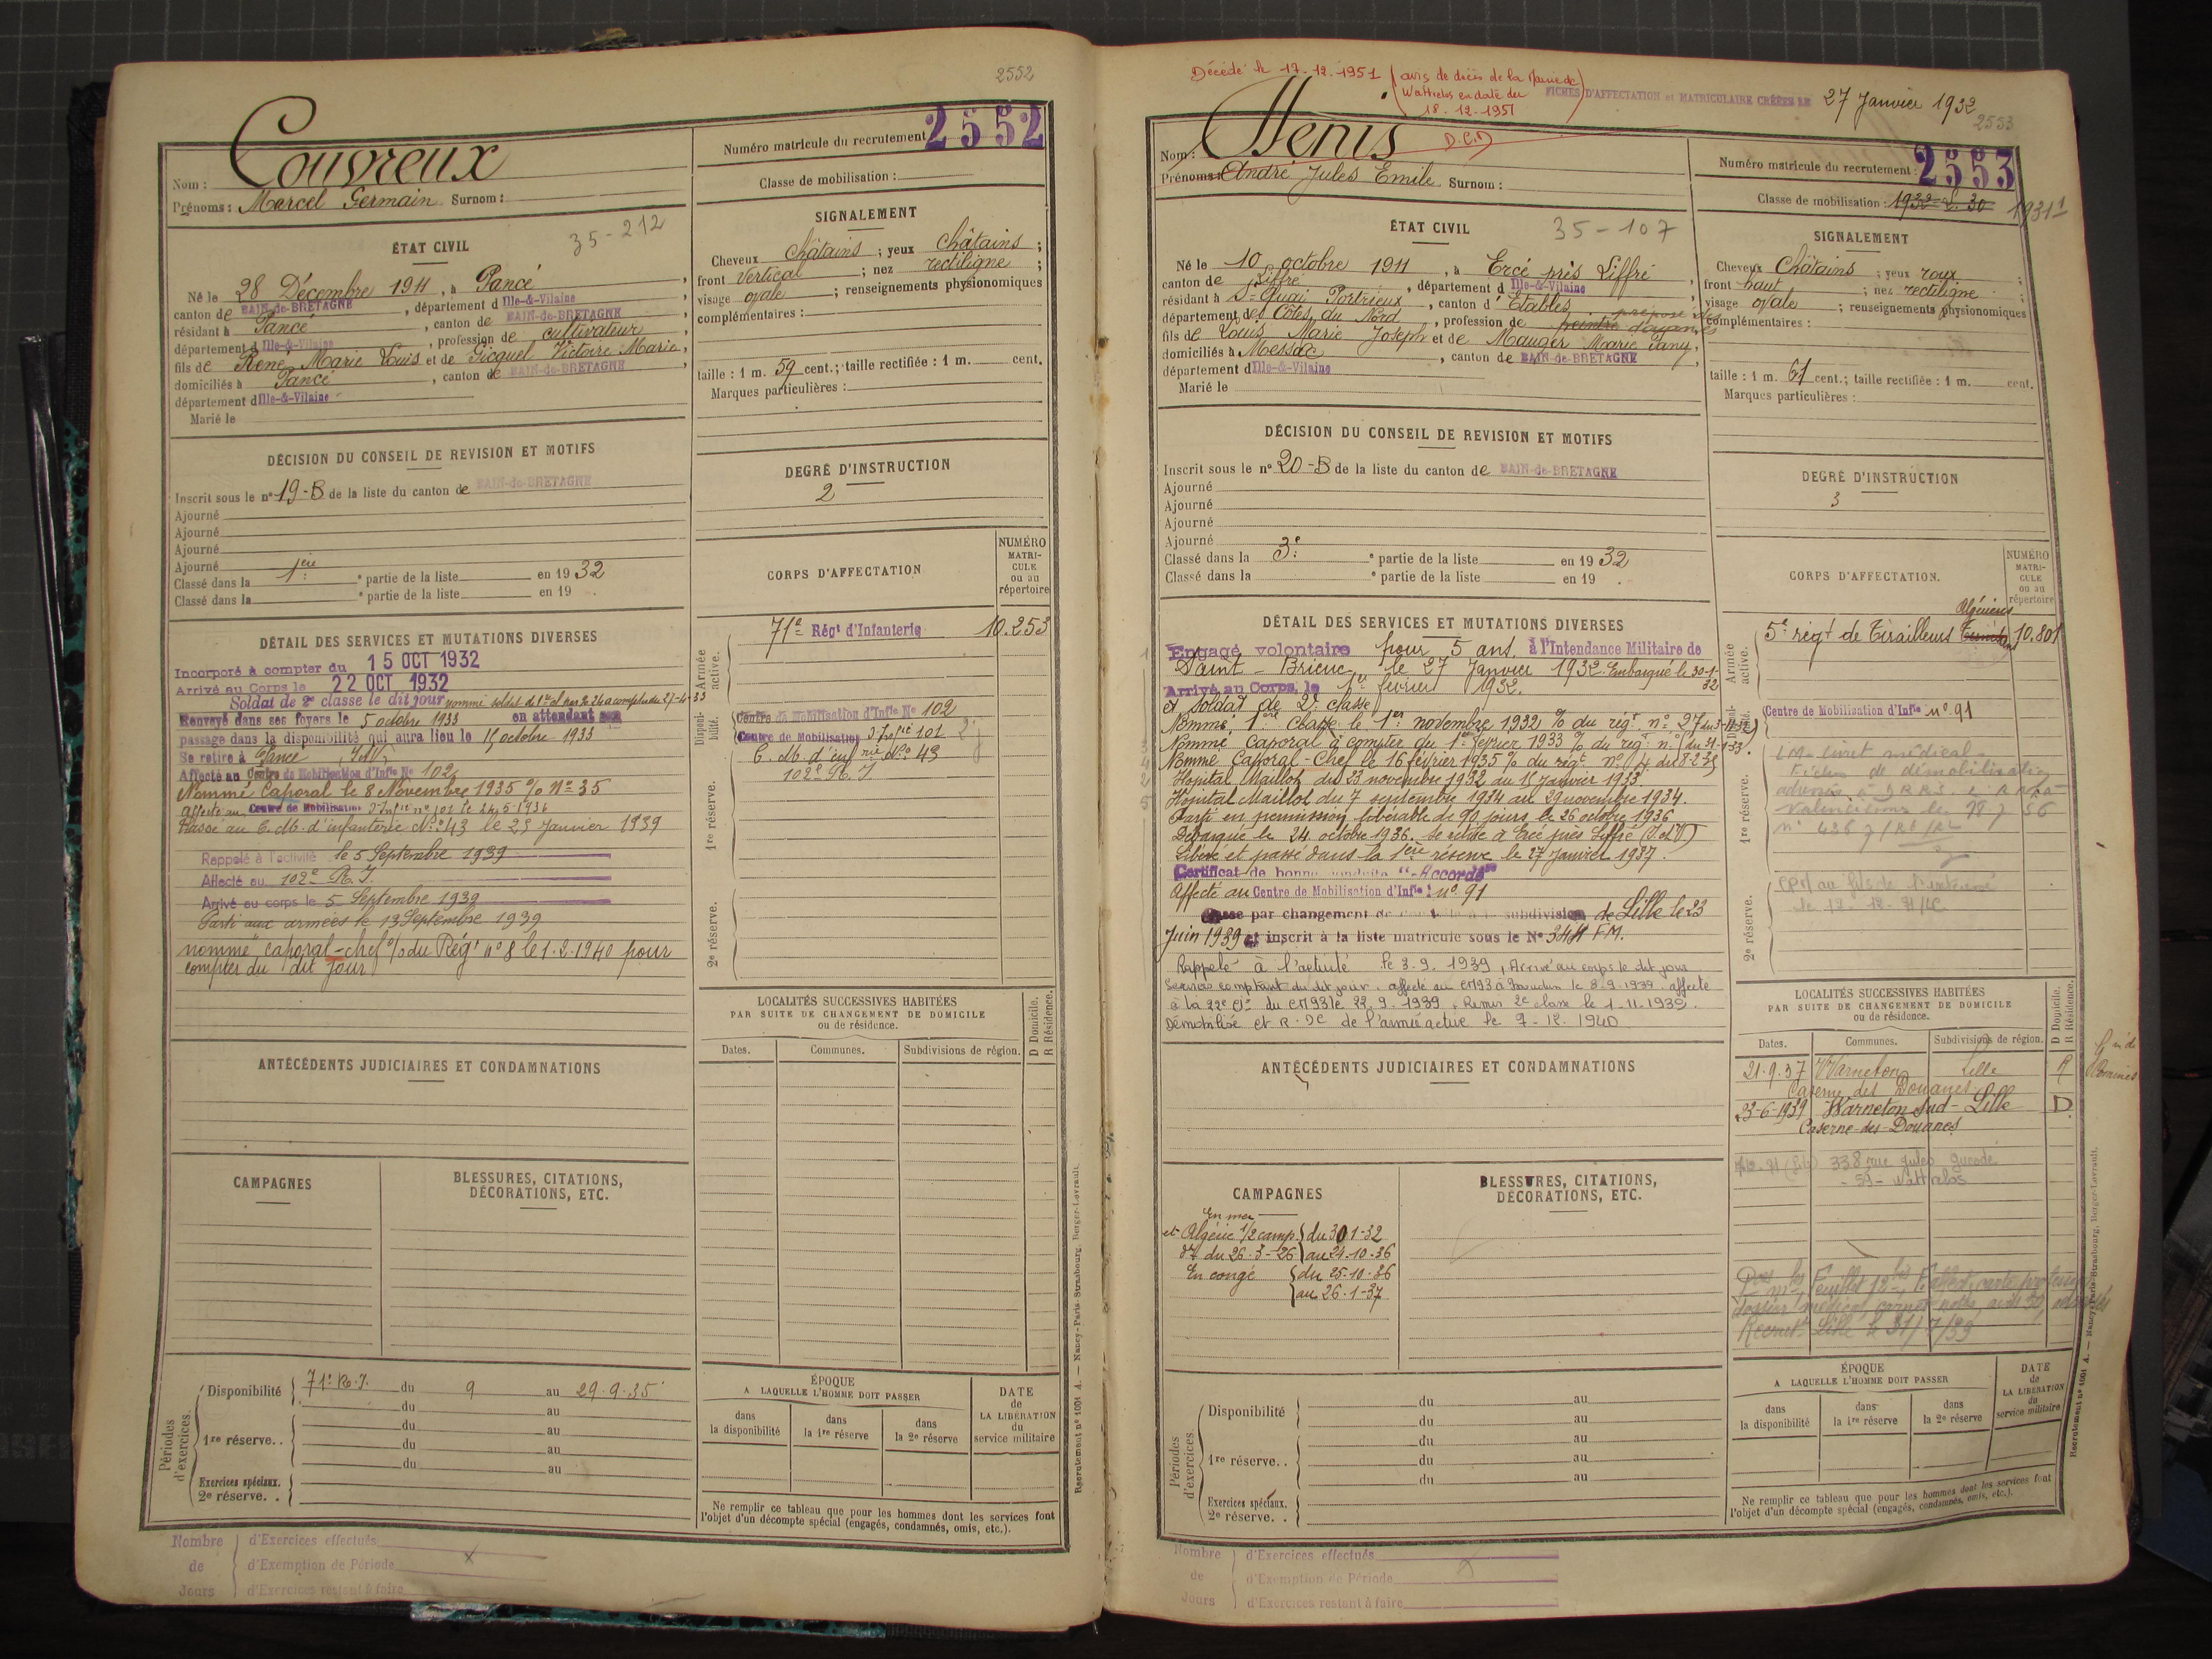 2552
Couvreux
Nom :
Prénoms : Marcel Germain Surnom :
Numéro matricule du recrutement 2552
Classe de mobilisation :
ÉTAT CIVIL
35-212
Né le 28 Décembre 1911, à Pancé,
canton de BAIN-de-BRETAGNE, département d Ille-&-Vilaine
résidant à Pancé, canton de BAIN-de-BRETAGNE
département d Ille-&-Vilaine, profession de cultivateur
fils de René Marie Louis et de Gicquel Victoire Marie,
domiciliés à Pancé, canton de BAIN-de-BRETAGNE
département d Ille-&-Vilaine
Marié le
SIGNALEMENT
Cheveux Châtains ; yeux Châtains ;
front Vertical ; nez rectiligne ;
visage ovale ; renseignements physionomiques
complémentaires :
taille : 1 m. 59 cent.; taille rectifiée : 1 m. cent.
Marques particulières :
DÉCISION DU CONSEIL DE REVISION ET MOTIFS
Inscrit sous le n° 19-B de la liste du canton de BAIN-de-BRETAGNE
Ajourné
Ajourné
Ajourné
Ajourné
Classé dans la 1ère e partie de la liste en 19 32
Classé dans la e partie de la liste en 19 .
DEGRÉ D'INSTRUCTION
2
CORPS D'AFFECTATION
NUMÉRO MATRI-CULE ou au répertoire
Armée active.
71e Régt d'Infanterie 10.253
Disponi-bilité.
Centre de Mobilisation d'Infie No 102
Centre de Mobilisation d'Infie 101
C. M. d'infrie No 43
102e R. I.
1re réserve.
2e réserve.
DÉTAIL DES SERVICES ET MUTATIONS DIVERSES
Incorporé à compter du 15 OCT 1932
Arrivé au Corps le 22 OCT 1932
Soldat de 2e classe le dit jour nommé soldat de 1re cl
Renvoyé dans ses foyers le 5 octobre 1933 en attendant son
passage dans la disponibilité qui aura lieu le 15 octobre 1933
Se retire à Pancé (I & V)
Affecté au Centre de Mobilisation d'Infie No 102
Nommé Caporal le 8 Novembre 1935 % No 35
affecté au Centre de Mobilisation d'Infie no 101 le 24.5.1936
Passé au C. M. d'infanterie No 43 le 25 Janvier 1939
Rappelé à l'activité le 5 Septembre 1939
Affecté au 102e R. I.
Arrivé au corps le 5 Septembre 1939
Parti aux armées le 13 Septembre 1939
nommé caporal-chef % du Régt n° 8 le 1.2.1940 pour
compter du dit jour
ANTÉCÉDENTS JUDICIAIRES ET CONDAMNATIONS
LOCALITÉS SUCCESSIVES HABITÉES
PAR SUITE DE CHANGEMENT DE DOMICILE
ou de résidence.
D Domicile. R Résidence.
Dates. Communes. Subdivisions de région.
CAMPAGNES
BLESSURES, CITATIONS,
DÉCORATIONS, ETC.
Périodes d'exercices.
Disponibilité 71e R.I. du 9 au 29.9.35
du au
1re réserve. . du au
du au
du au
Exercices spéciaux.
2e réserve. .
ÉPOQUE
A LAQUELLE L'HOMME DOIT PASSER
dans la disponibilité
dans la 1re réserve
dans la 2e réserve
DATE de LA LIBÉRATION du service militaire
Ne remplir ce tableau que pour les hommes dont les services font
l'objet d'un décompte spécial (engagés, condamnés, omis, etc.).
Recrutement n° 1001 A. — Nancy-Paris-Strasbourg, Berger-Levrault.
Nombre de Jours
d'Exercices effectués
d'Exemption de Période
d'Exercices restant à faire
Décédé le 17.12.1951 (avis de décès de la Mairie de
Wattrelos en date du
18.12.1951)
FICHES D'AFFECTATION et MATRICULAIRE CRÉÉES LE 27 Janvier 1932
2553
D.C.D
Nom : Denis
Prénoms : André Jules Emile Surnom :
Numéro matricule du recrutement : 2553
Classe de mobilisation : 1932 1931
ÉTAT CIVIL
35-107
Né le 10 octobre 1911, à Ercé près Liffré
canton de Liffré, département d Ille-&-Vilaine
résidant à St Quai Portrieux, canton d'Etables
département des Côtes du Nord, profession de peintre préposé des douanes
fils de Louis Marie Joseph et de Mauger Marie Fany,
domiciliés à Messac, canton de BAIN-de-BRETAGNE
département d Ille-&-Vilaine
Marié le
SIGNALEMENT
Cheveux Châtains ; yeux roux ;
front haut ; nez rectiligne ;
visage ovale ; renseignements physionomiques
complémentaires :
taille : 1 m. 61 cent.; taille rectifiée : 1 m. cent.
Marques particulières :
DÉCISION DU CONSEIL DE REVISION ET MOTIFS
Inscrit sous le n° 20-B de la liste du canton de BAIN-de-BRETAGNE
Ajourné
Ajourné
Ajourné
Ajourné
Classé dans la 3e e partie de la liste en 19 32
Classé dans la e partie de la liste en 19 .
DEGRÉ D'INSTRUCTION
3
CORPS D'AFFECTATION.
NUMÉRO MATRI-CULE ou au répertoire
Armée active.
5e régt de Tirailleurs Algériens 10.801
Centre de Mobilisation d'Infie no 91
1re réserve.
livret médical
de démobilisation
2e réserve.
DÉTAIL DES SERVICES ET MUTATIONS DIVERSES
Engagé volontaire pour 5 ans à l'Intendance Militaire de
Saint-Brieuc le 27 Janvier 1932. Embarqué le 30-1-32
Arrivé au Corps le 1er février 1932.
et Soldat de 2e classe
Nommé 1ère classe le 1er novembre 1932 % du régt n° 97
Nommé Caporal à compter du 1er février 1933 % du régt n°
Nommé Caporal-Chef le 16 février 1935 % du régt no 14 du 8-2-35
Hopital Maillot du 23 novembre 1932 du 15 Janvier 1933
Hopital Maillot du 7 septembre 1934 au 29 novembre 1934.
Parti en permission libérable de 90 jours, le 26 octobre 1936
Débarqué le 24 octobre 1936. Se retire à Ercé près Liffré (I et V)
Libéré et passé dans la 1ère réserve le 27 Janvier 1937.
Certificat de bonne conduite "Accordé"
Affecté au Centre de Mobilisation d'Infie no 91
Passé par changement de subdivision de Lille le 23
Juin 1939 et inscrit à la liste matricule sous le No 3411 F.M.
Rappelé à l'activité le 3.9.1939, Arrivé au corps le dit jour
Services comptant du dit jour. affecté au le 8.9.1939. affecté
à la 22e Cie du le 22.9.1939. Remis 2e classe le 1.11.1939.
Démobilisé et R. de l'armée active le 7.12.1940
ANTÉCÉDENTS JUDICIAIRES ET CONDAMNATIONS
LOCALITÉS SUCCESSIVES HABITÉES
PAR SUITE DE CHANGEMENT DE DOMICILE
ou de résidence.
D Domicile. R Résidence.
Dates. Communes. Subdivisions de région.
21.9.37 Warneton Lille R
Caserne des Douanes
23-6-1939 Warneton-Sud Lille D.
Caserne des Douanes
338 rue Jules Guesde
-59- Wattrelos
CAMPAGNES
En mer
et Algérie 1/2 camp. du 30 1-32
au 24-10-36
En congé du 25-10-36
au 26-1-37
BLESSURES, CITATIONS,
DÉCORATIONS, ETC.
Recrut. Lille le 31/7/39
Périodes d'exercices.
Disponibilité du au
du au
1re réserve. . du au
du au
du au
Exercices spéciaux.
2e réserve. .
ÉPOQUE
A LAQUELLE L'HOMME DOIT PASSER
dans la disponibilité
dans la 1re réserve
dans la 2e réserve
DATE de LA LIBÉRATION du service militaire
Ne remplir ce tableau que pour les hommes dont les services font
l'objet d'un décompte spécial (engagés, condamnés, omis, etc.).
Recrutement n° 1001 A. — Nancy-Paris-Strasbourg, Berger-Levrault.
Nombre de Jours
d'Exercices effectués
d'Exemption de Période
d'Exercices restant à faire